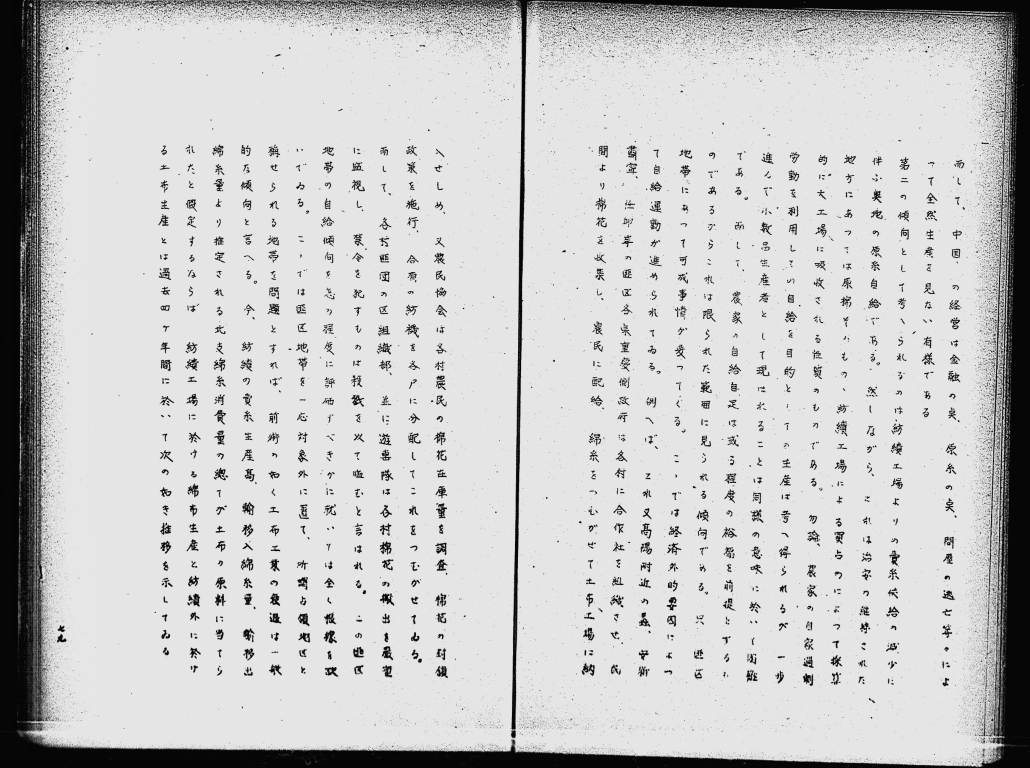 而して、中国、の経営は金融の臭、原糸の臭、問屋の逃亡等々によ
って全然生産を見ない有様である
第二の傾向として考へられるのは紡績工場よりの賣糸供給の減少に
伴ふ奥地の原糸自給である。然しながら、これは治安の維持された
地方にあつては原棉そのものゝ紡績工場による買占めによつて
的に大工場に吸収される性質のものである。勿論、農家の自家過剰
労働を利用しての自給を目的としての生産は考へ得られるが一歩
進んで小数品生産者として現はれることは同様の意味に於いて困難
である。而して、農家の自給自足は或る程度の裕智を前提とするも
のであるからこれは限られた範囲に見られる傾向である。只匪区
地帯にあつて可成事情が変つてくる。こゝでは経済外的要因によつ
て自給運動が進められてゐる。例へば、之れ又高陽附近の蠡、安新
の匪区各県重慶側政府は各村に合作社を組織させ、民
間より棉花を収集し、農民に配給、綿糸をつむがせて土布工場に納
入せしめ、又農民協会は各村農民の棉花在庫量を調査、棉花の封鎖
政策を施行、合、の紡機を各戸に分配してこれをつむがせてゐる。
而して、各村匪団の区組織部、並に遊票隊は各村棉花の搬出を厳重
に監視し、禁令を犯すものは投戯を以て臨むと言はれる。この匪区
地帯の自給傾向を怎の程度に評価すべきかに就いては全く根據を欠
いでゐる。こゝでは匪区地帯を一応対象外に置て、所謂占領地区と
称せられる地帯を問題とすれば、前術の如く土布工業の衰退は一般
的な傾向と言へる。今、紡績の賣糸生産高、輸移入綿糸量、輸移出
綿糸量より推定される北支綿糸消費量の総てが土布の原料に当てら
れたと假定するならば紡績工場に於ける綿布生産と紡績外に於け
る土布生産とは過去四ケ年間に於いて次の如き推移を示してゐる
七九